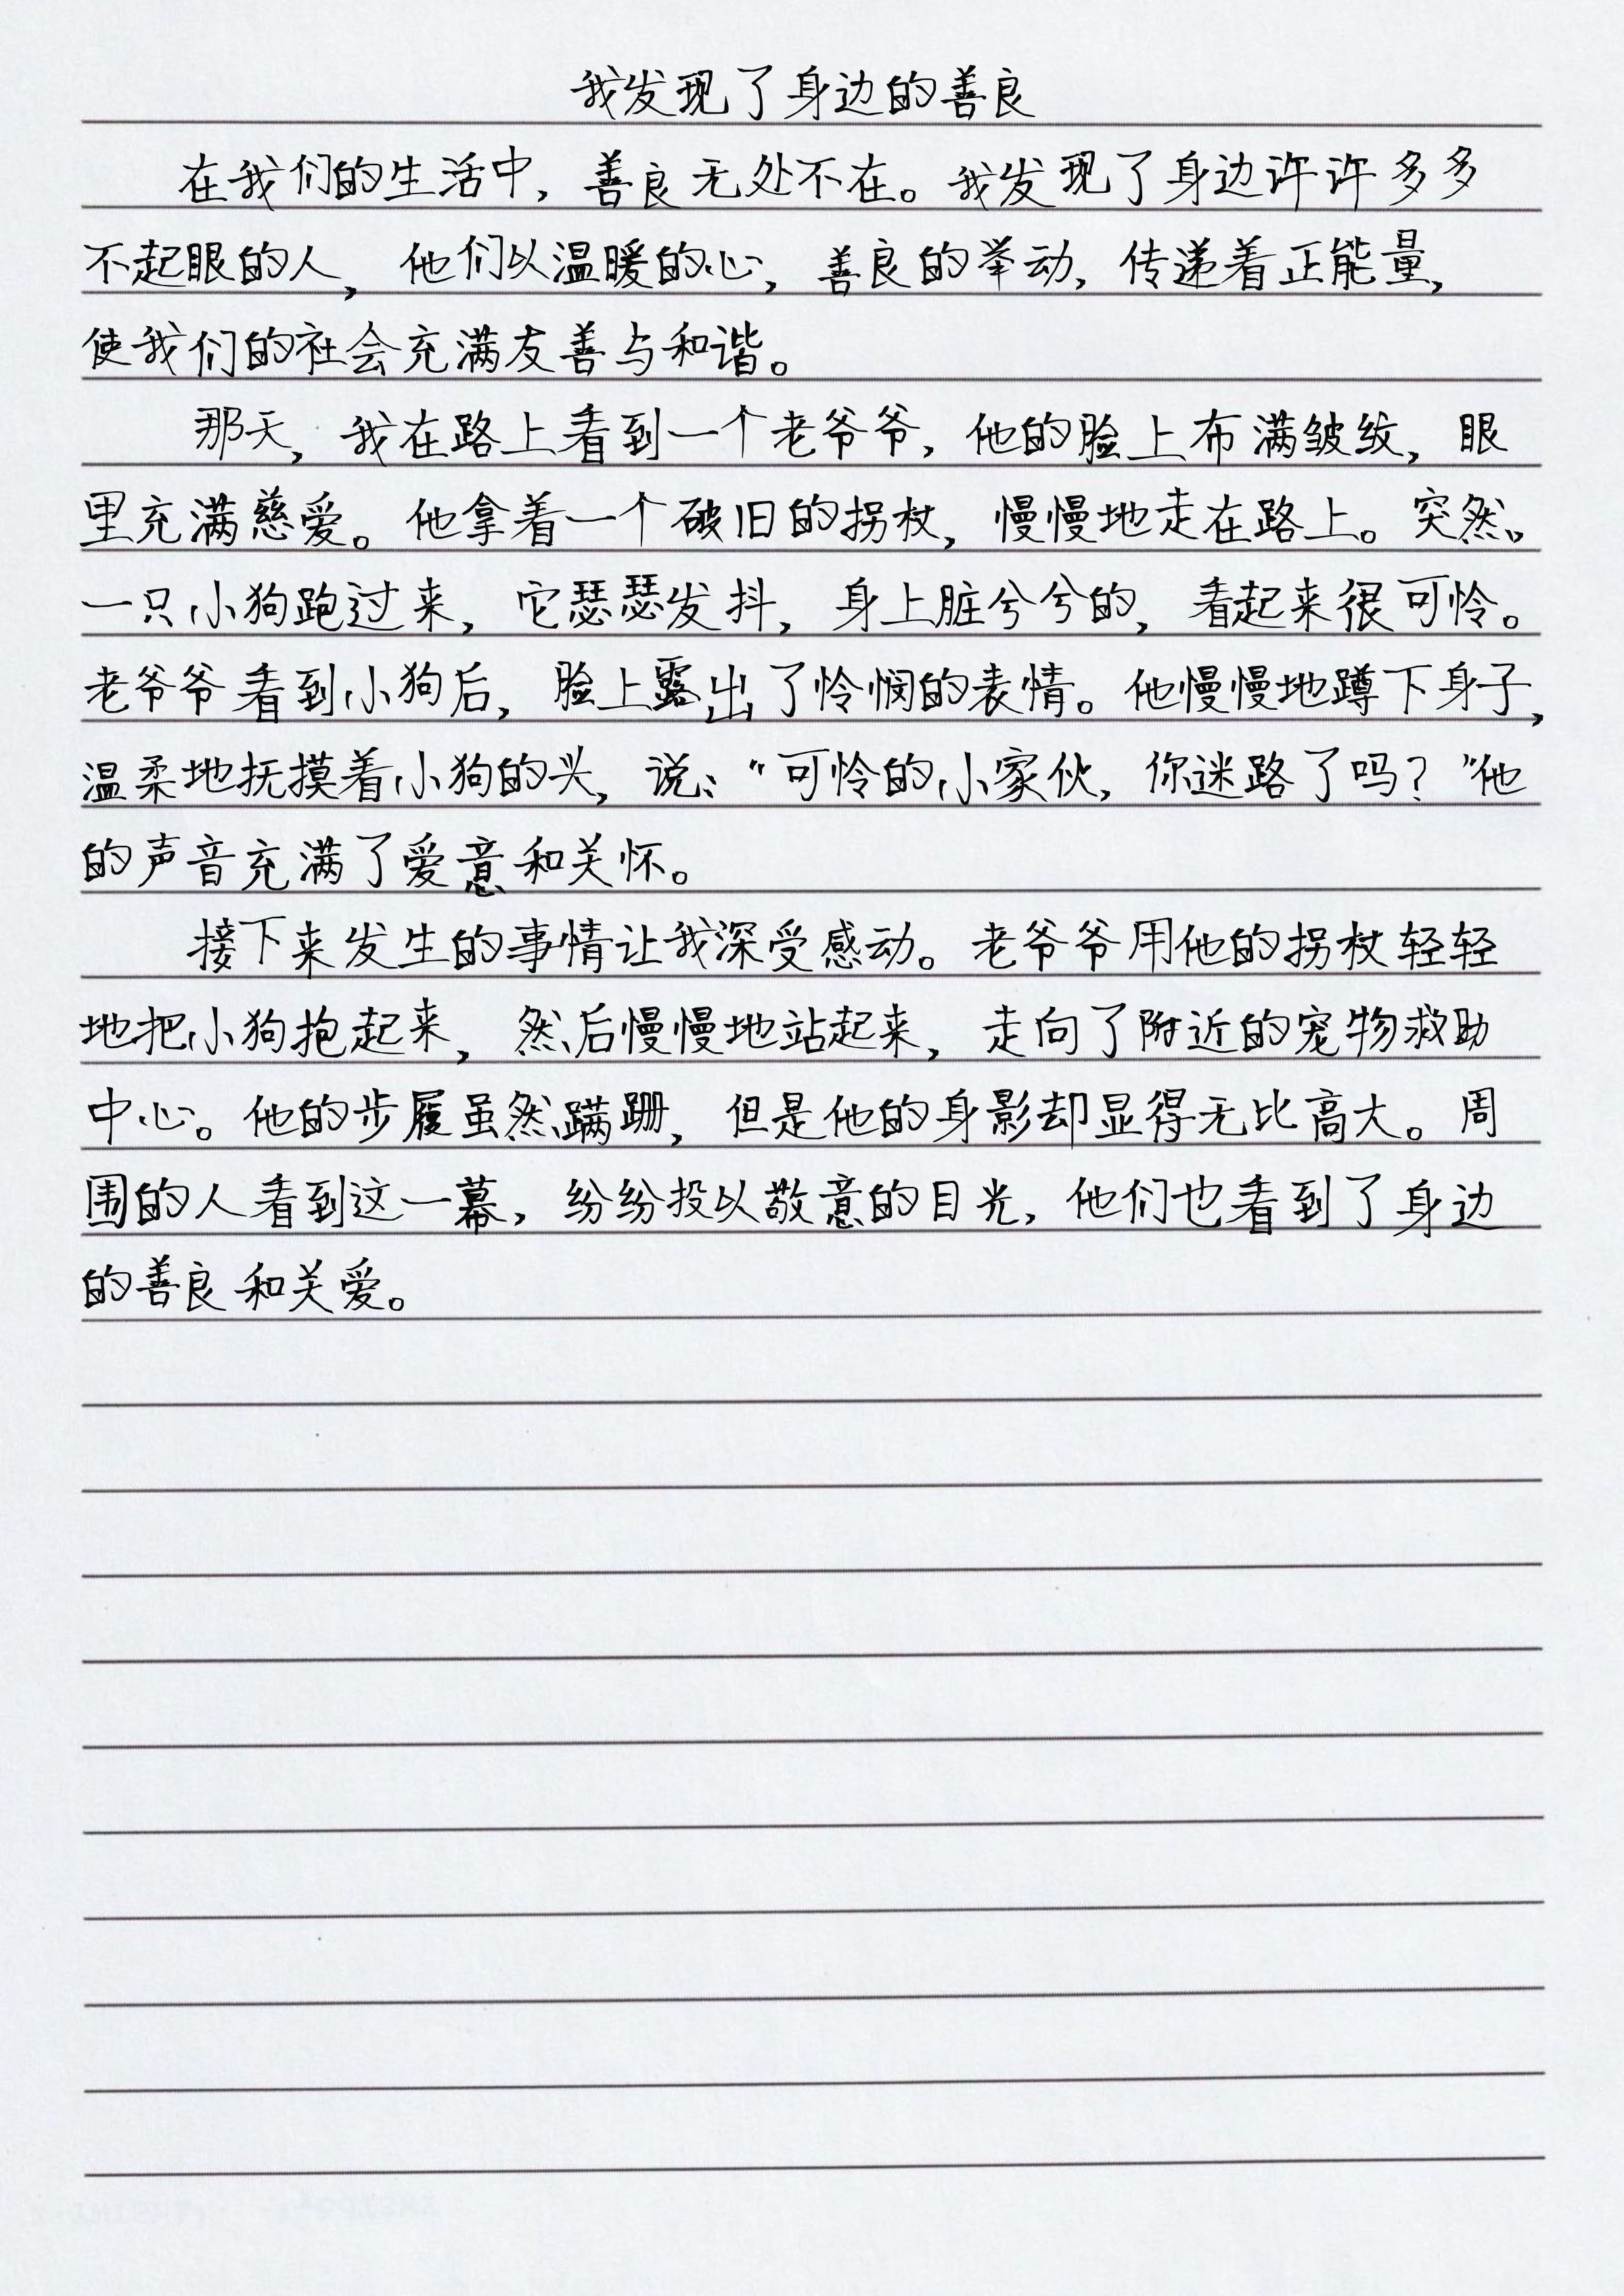 我发现了身边的善良
在我们的生活中，善良无处不在。我发现了身边许许多多
不起眼的人，他们以温暖的心，善良的举动，传递着正能量，
使我们的社会充满友善与和谐。
那天，我在路上看到一个老爷爷，他的脸上布满皱纹，眼
里充满慈爱。他拿着一个破旧的拐杖，慢慢地走在路上。突然，
一只小狗跑过来，它瑟瑟发抖，身上脏兮兮的，看起来很可怜。
老爷爷看到小狗后，脸上露出了怜悯的表情。他慢慢地蹲下身子，
温柔地抚摸着小狗的头，说：“可怜的小家伙，你迷路了吗？”他
的声音充满了爱意和关怀。
接下来发生的事情让我深受感动。老爷爷用他的拐杖轻轻
地把小狗抱起来，然后慢慢地站起来，走向了附近的宠物救助
中心。他的步履虽然蹒跚，但是他的身影却显得无比高大。周
围的人看到这一幕，纷纷投以敬意的目光，他们也看到了身边
的善良和关爱。